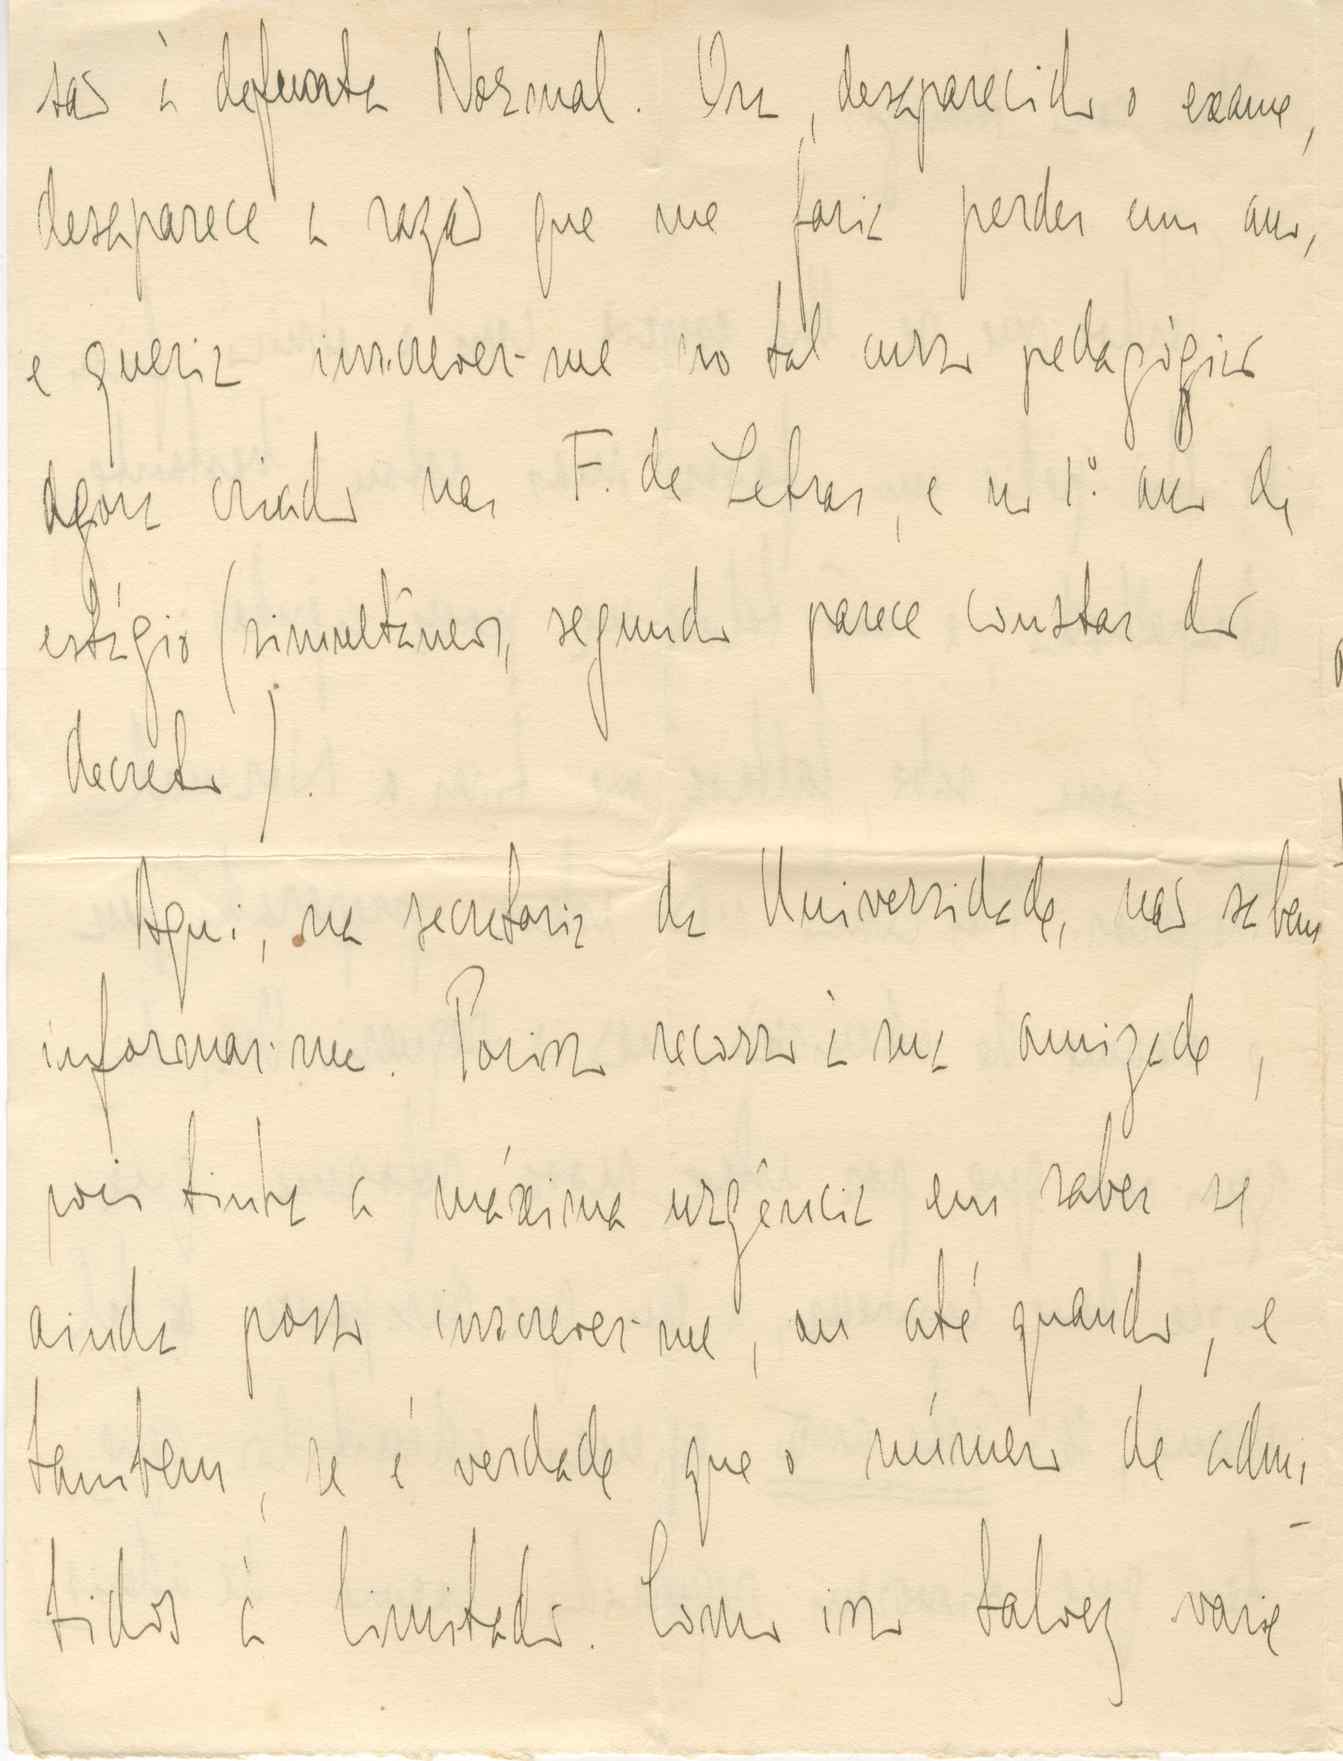 são à defunta Normal. Ora, desaparecido o exame,
desaparece a razão que me faria perder um ano,
e queria inscrever-me no tal curso pedagógico
agora criado nas F. de Letras, e no 1º. ano de
estágio (simultâneos, segundo parece constar do
decreto).
Aqui, na secretaria da Universidade, não sabem
informar-me. Porisso recorro à sua amizade,
pois tinha a máxima urgência em saber se
ainda posso inscrever-me, ou até quando, e
tambem, se é verdade que o número de admi
tidos é limitado. Como isso talvez varie